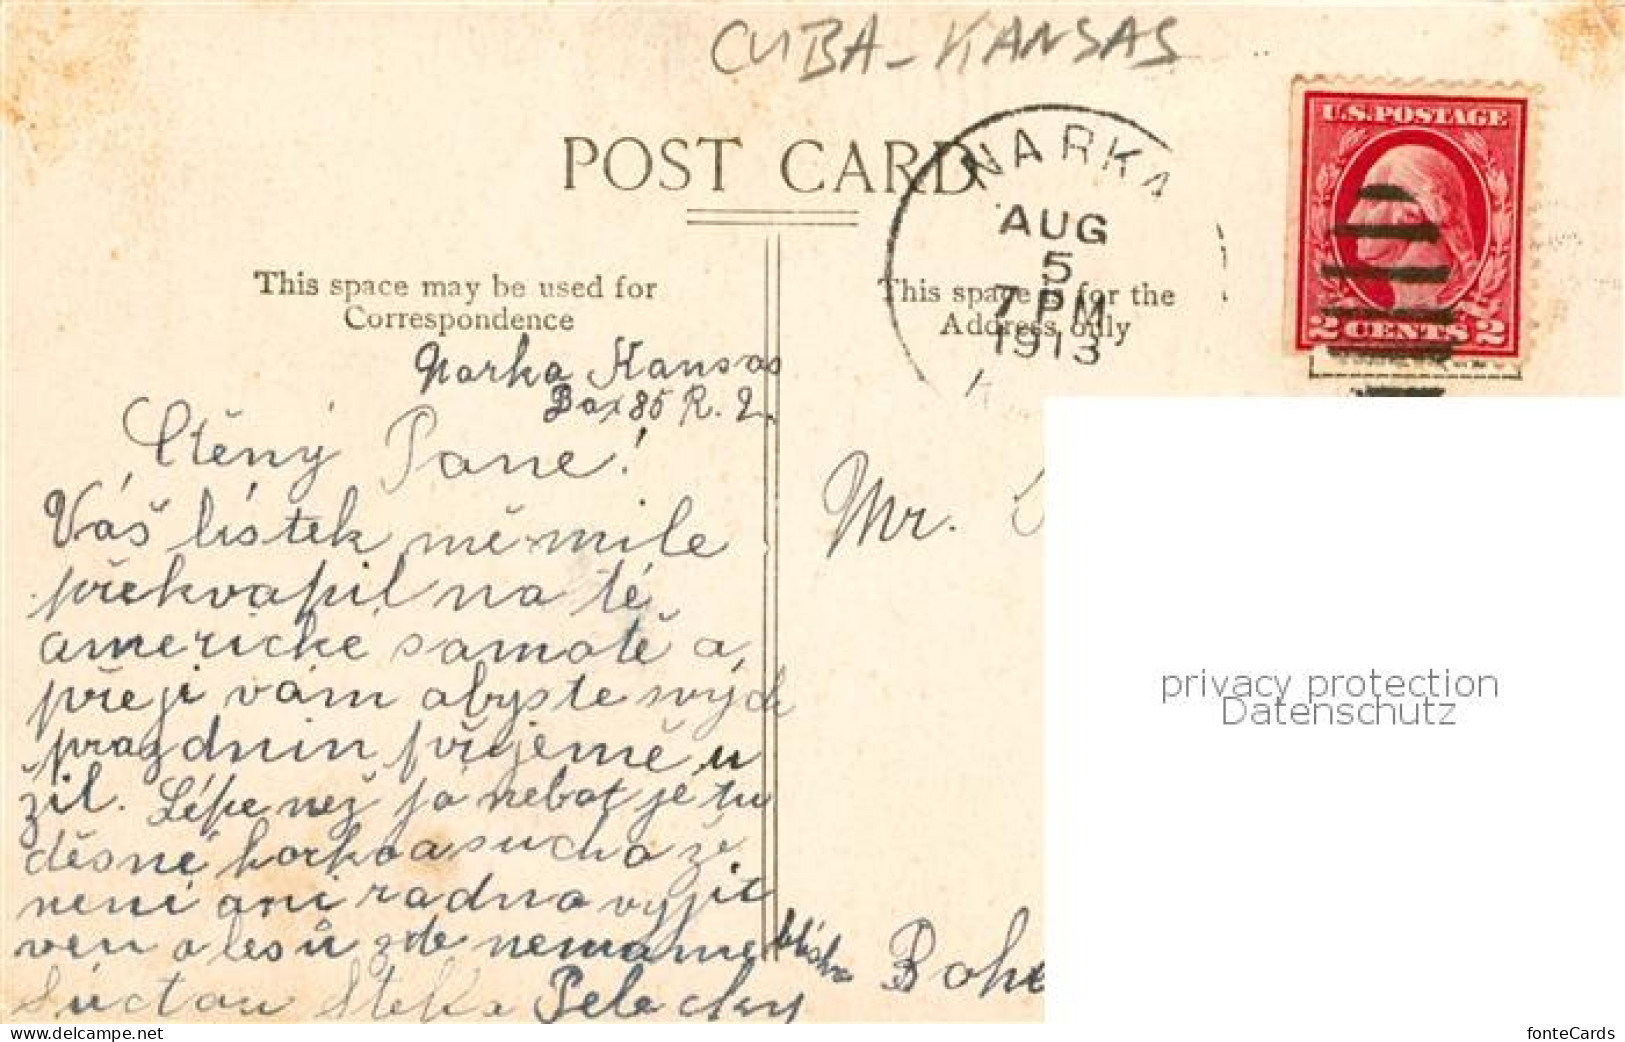 CUBA-KANSAS
U.S.POSTAGE
2 CENTS 2
NARKA
AUG
5
7 PM
1913
POST CARD
This space may be used for
Correspondence
This space is for the
Address only
Narka Kansas
Box 85 R. 2.
Ctěný Pane!
Váš lístek mě mile
překvapil na té
americké samotě a
přeji vám abyste svých
prazdnin příjemě u
žil. Lépe než já nebot je tu
děsné horko a sucho že
není ani radno vyjit
ven a lesů zde nemáme blísko
S úctou Pelecky
Mr.
Bohe
privacy protection
Datenschutz
www.delcampe.net
fonteCards